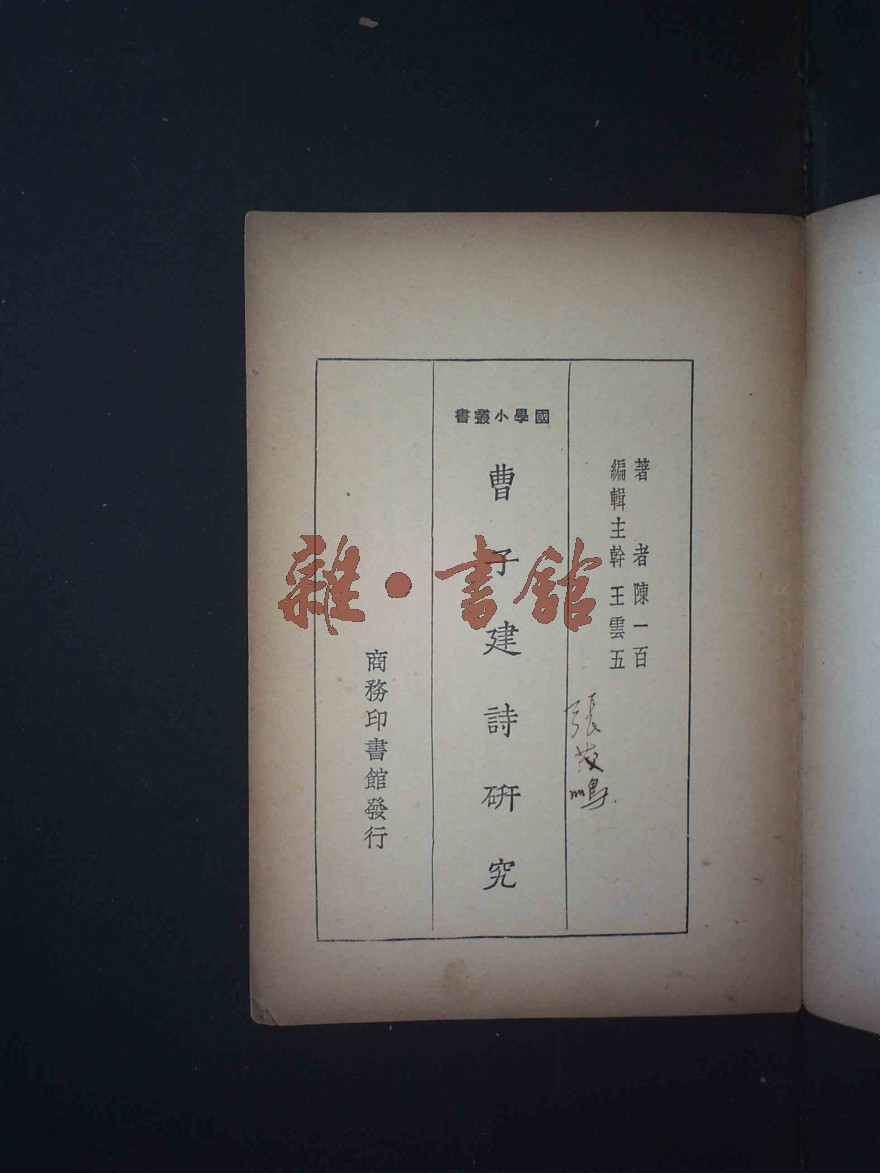 著者陳一百
編輯主幹王雲五
國學小叢書
曹子建詩研究
商務印書館發行
張茂鵬
雜·書館